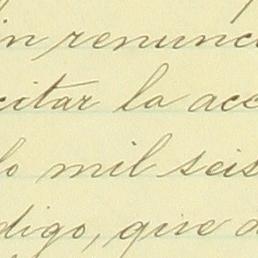 in renunci
citar la acc
lo mil seis
digo, que d